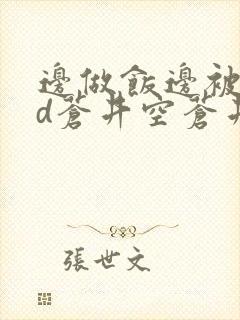 邊做飯邊被
d蒼井空蒼井
張世文